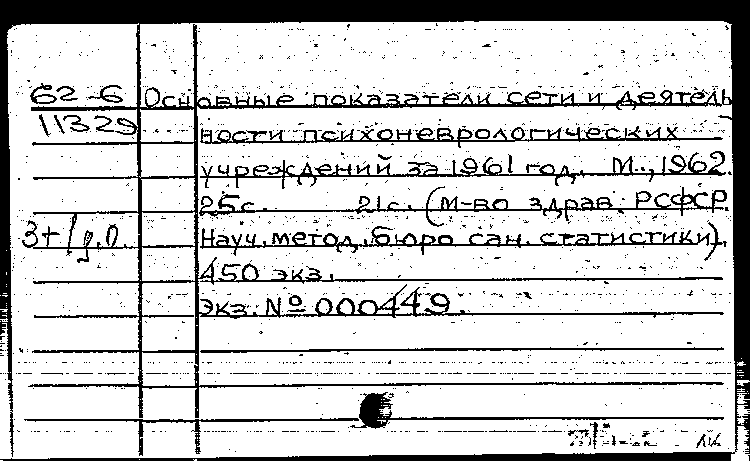 62-6 Основные показатели сети и деятель
11329 ности психоневрологических
учреждений за 1961 год. М., 1962.
25с. 21с. (М-во здрав. РСФСР.
3+1 д.п. Науч. метод. бюро сан. статистики).
450 экз.
Экз. № 000449.